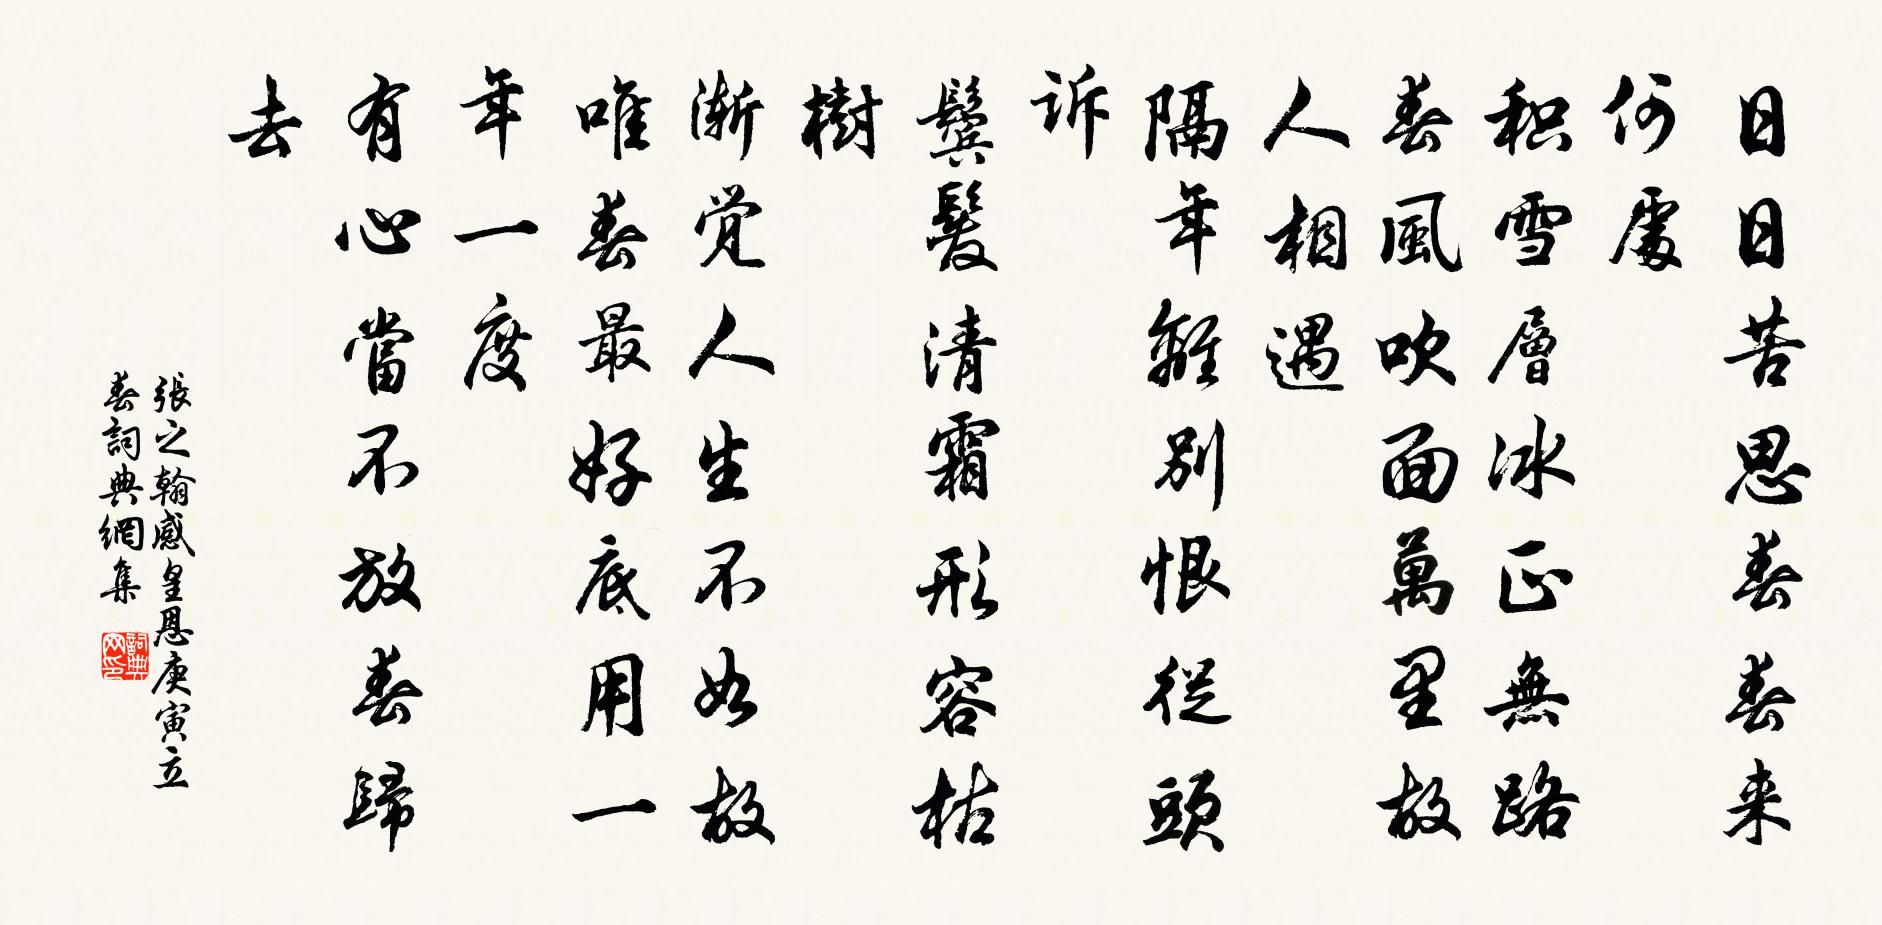 日日苦思春春来
何處
积雪層冰正無路
春風吹面萬里故
人相遇
隔年離別恨從頭
訴
鬓髮清霜形容枯
樹
渐觉人生不如故
唯春最好底用一
年一度
有心當不放春歸
去
張之翰感皇恩庚寅立
春詞典網集
詞典
网印